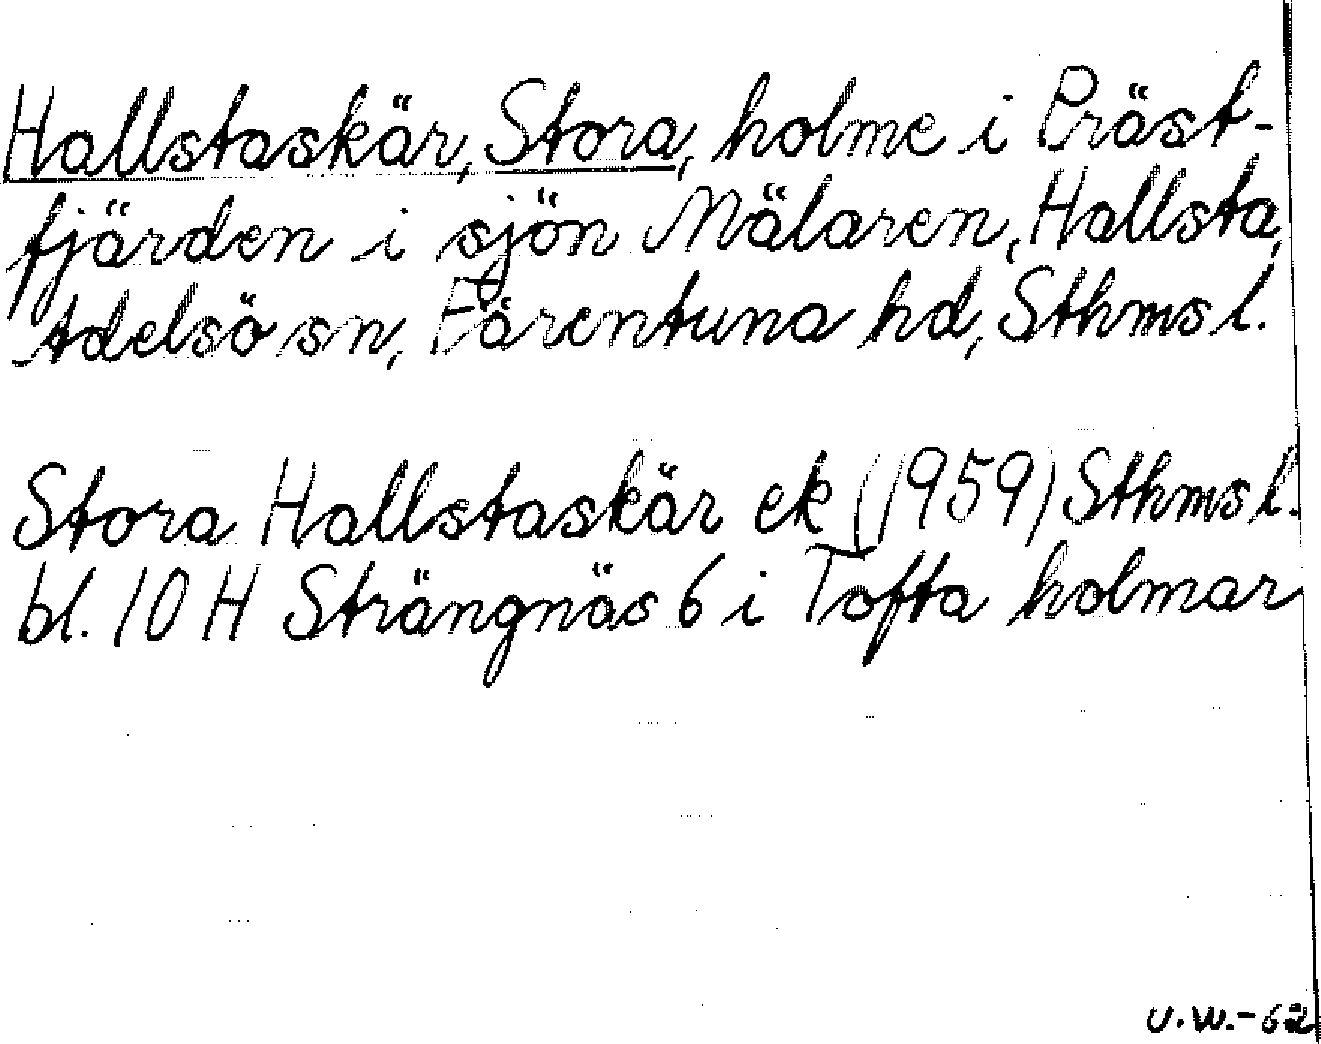 Hallstaskär, Stora, holme i Präst-
fjärden i sjön Mälaren, Hallsta,
Adelsö sn, Färentuna hd, Sthms l.
Stora Hallstaskär ek (1959) Sthms l.
bl. 10 H Strängnäs 6 i Tofta holmar
U.W.-62